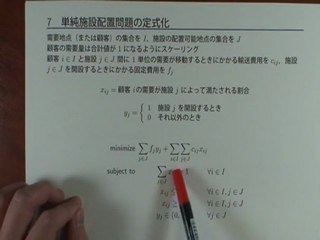 7 単純施設配置問題の定式化
需要地点（または顧客）の集合を I, 施設の配置可能地点の集合を J
顧客の需要量は合計値が 1 になるようにスケーリング
顧客 i∈I と施設 j∈J 間に 1 単位の需要が移動するときにかかる輸送費用を c_ij, 施設
j を開設するときにかかる固定費用を f_j
x_ij = 顧客 i の需要が施設 j によって満たされる割合
y_j = { 1 施設 j を開設するとき
0 それ以外のとき
minimize ∑_{j∈J} f_j y_j + ∑_{i∈I} ∑_{j∈J} c_ij x_ij
subject to ∑_{j∈J} 1 ∀i∈I
x_ij ≤ ∀i∈I, j∈J
x_ij ≥ ∀i∈I, j∈J
y_j ∈ {0, ∀j∈J